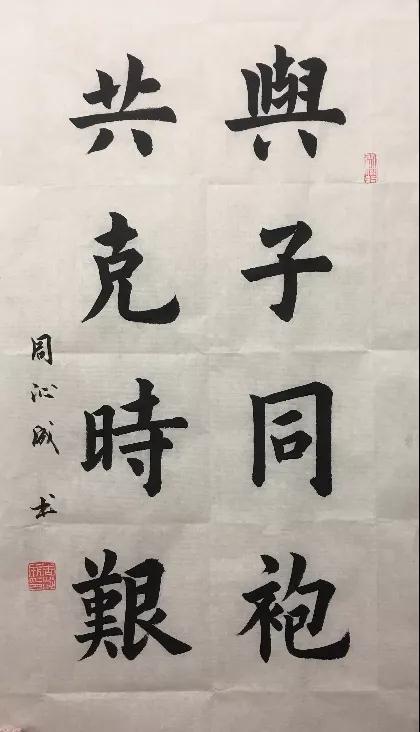 與子同袍
共克時艱
周沁成书